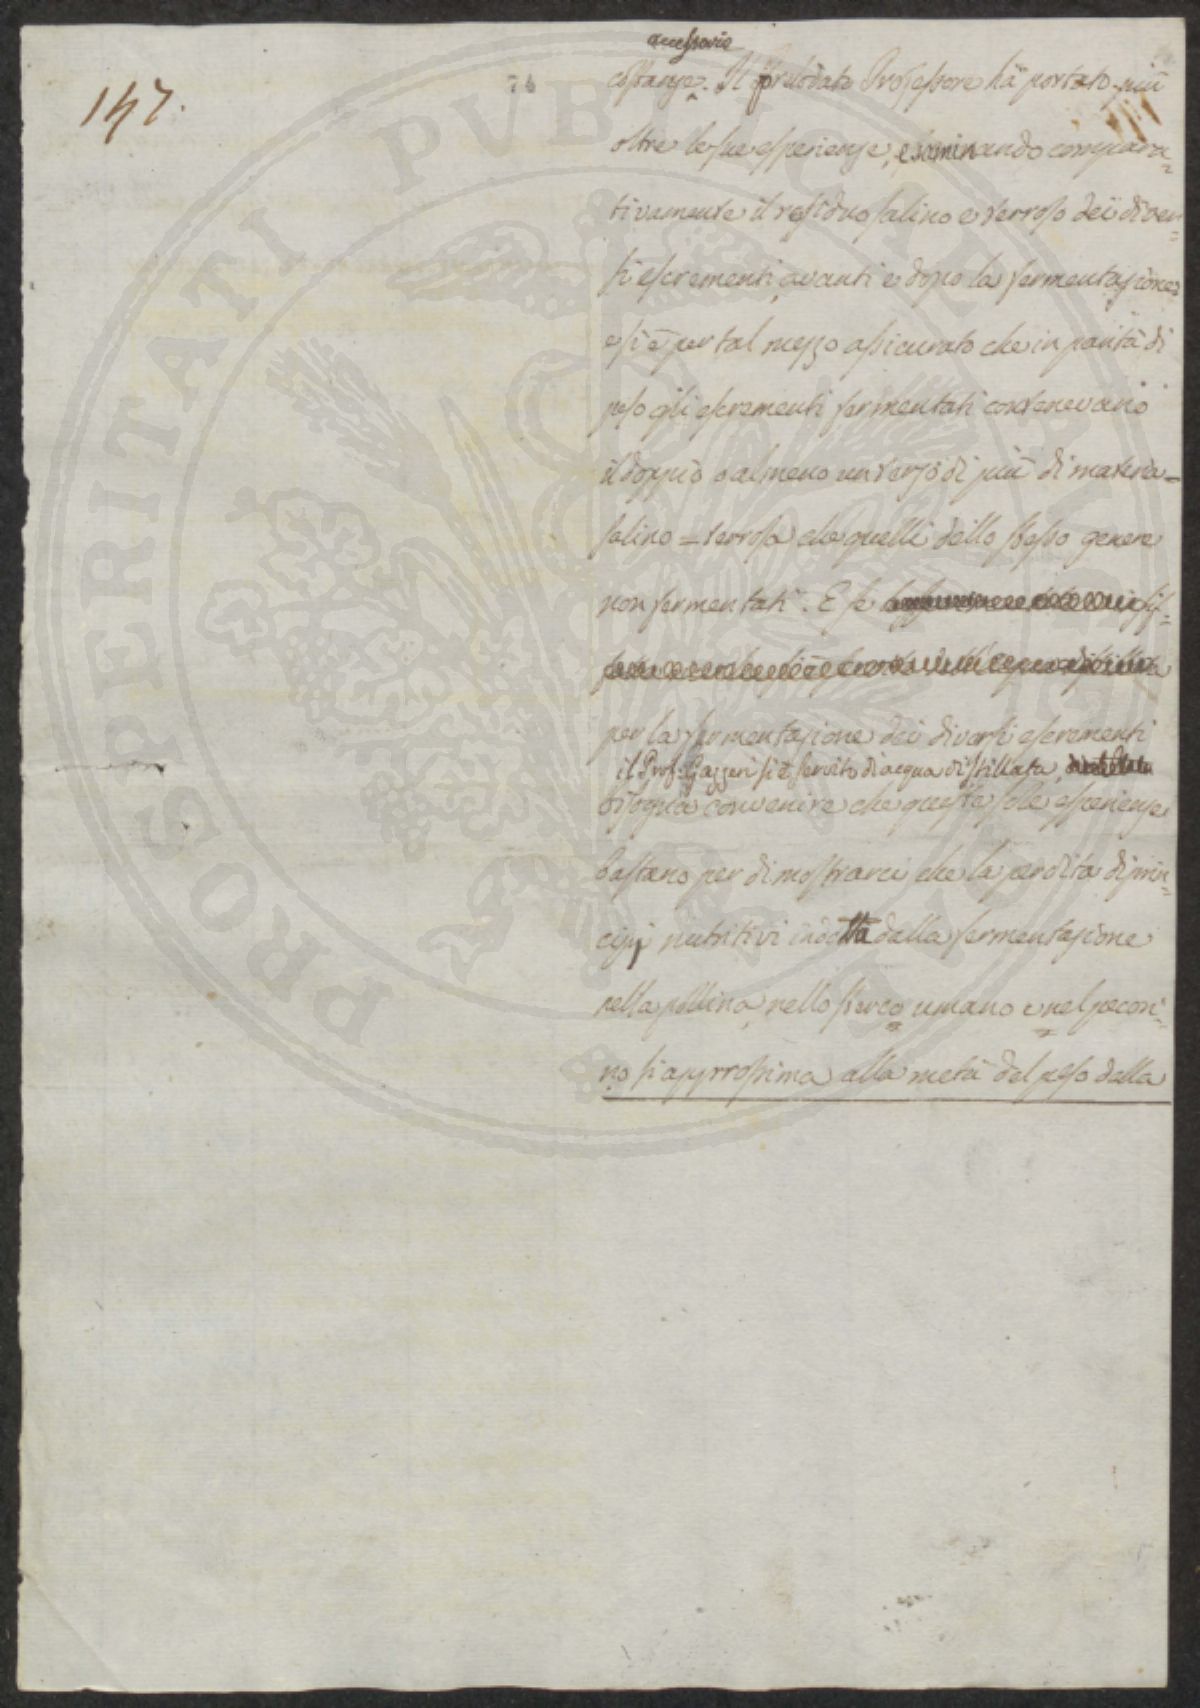 147.
74
accessorie
costanze. Il prelodato Professore hà portato più
oltre le sue esperienze, esaminando compara=
tivamente il residuo salino e terroso dei diver=
si escrementi avanti e dopo la fermentazione
e si è per tal mezzo assicurato che in parità di
peso gli escrementi fermentati contenevano
il doppio o almeno un terzo di più di materia
salino = terrosa che quelli dello stesso genere
non fermentati. E se
per la fermentazione dei diversi escrementi
il Prof. Gazzeri si è servito di acqua distillata,
bisogna convenire che queste sole esperienze
bastano per dimostrarci che la perdita di prin=
cipj nutritivi indotta dalla fermentazione
nella pollina, nello sterco umano e nel pecori=
no si approssima alla metà del peso della
PROSPERITATI PVBLICAE